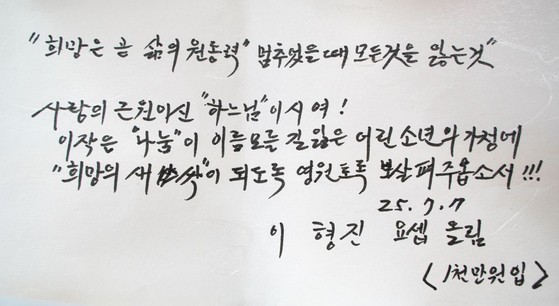 "희망은 곧 삶의 원동력" 멈추었을때 모든것을 잃는것"
사랑의 근원이신 "하느님"이시여!
이작은 "나눔"이 이름모를 길잃은 어린소년의 가정에
"희망의 새싹"이 되도록 영원토록 보살펴주옵소서!!!
25.7.7
이 형진 요셉 올림
<1천만원입>